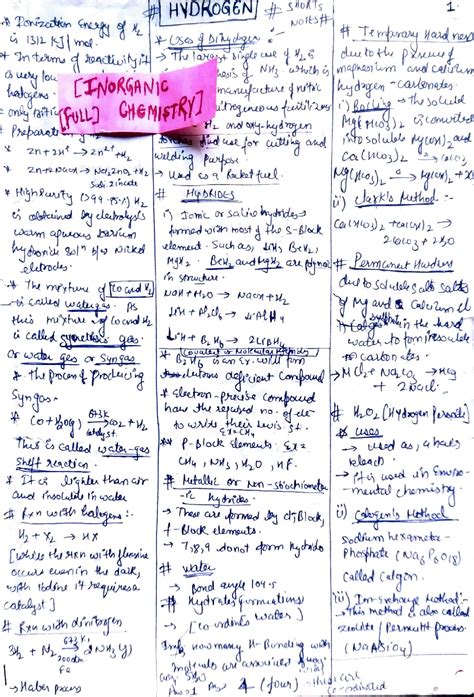 # HYDROGEN #
# SHORTS
NOTES #
1.
* Ionization Energy of H2
is 1312 KJ/mol.
* In terms of reactivity it
is very low
halogens.
[INORGANIC
[FULL] CHEMISTRY]
* Preparat
* Zn + 2H+ → Zn2+ + H2
* Zn + 2NaOH → Na2ZnO2 + H2
Sodi. zincate
* High Purity (>99.95%) H2
is obtained by electrolysis
warm aqueous barium
hydroxide sol^n b/w Nickel
eletrodes.
* The mixture of CO and H2
is called water gas. As
this mixture of CO and H2
is called synthesis gas
or water gas or Syngas.
* The process of producing
Syngas.
* CO + H2O(g) 673K → CO2 + H2
catalyst
This is called water-gas
shift reaction.
* It is lighter than air
and insoluble in water
# Rxn with halogens:-
H2 + X2 → HX
[While the rxn with fluorine
occurs even in the dark,
with iodine it requires a
catalyst]
# Rxn with dinitrogen
3H2 + N2 673K, → 2NH3(g)
200atm
Fe
→ Haber process
* Uses of Dihydrogen
→ The largest single use of H2 is
esis of NH3 which is
manufacture of nitric
nitrogeneous fertilizers
H2 and oxy-hydrogen
torches find use for cutting and
welding purpose
→ Used as a Rocket fuel.
# HYDRIDES
i) Ionic or saline hydrides
formed with most of the S-Block
element. Such as, LiH, BeH2,
MgH2. BeH2 and MgH2 are polymeric
in structure.
NaH + H2O → NaOH + H2
LiH + Al2Cl6 → LiAlH4
LiH + B2H6 → 2LiBH4
Covalent or Molecular Hydrides
* B2H6 is an Ex. will form
electrons deficient compound
* Electron-precise compound
have the required no. of e-
to write their Lewis st.
Ex = CH4
* P-Block elements. Ex =
CH4, NH3, H2O, HF.
# Metallic or Non-stoichiometr
-ic hydrides.
→ These are formed by d & f Block
f-Block elements.
→ 7,8,9 do not form hydride
# Water
→ Bond angle 104.5
# Hydrates formations
→ [co ordinate water]
Imp. how many H-Bonding with
molecule are associated
Ans → 4 (four)
# Temporary Hardness
due to the presence of
magnesium and calcium
hydrogen-carbonates.
i) Boiling → The soluble
Mg(HCO3)2 is converted
into soluble Mg(OH)2 and
Ca(HCO3)2
Mg(HCO3)2 → Mg(OH)2 +
ii) Clark's Method:-
Ca(HCO3)2 + Ca(OH)2 →
2CaCO3 + 2H2O
# Permanent Hardness
due to soluble salts
of Mg and Calcium
in the hard
water to form insoluble
carbonates.
→ MCl2 + Na2CO3 → MCO3
+ 2NaCl.
# H2O2 [Hydrogen Peroxide]
# uses
→ used as, a hair
bleach
→ it is used in Environ-
mental chemistry.
ii) Calgon's Method
sodium hexameta-
Phosphate (Na6P6O18)
Called Calgon.
iii) Ion-exchange Method:-
→ This method is also called
zeolite / Permutit process.
(NaAlSiO4)